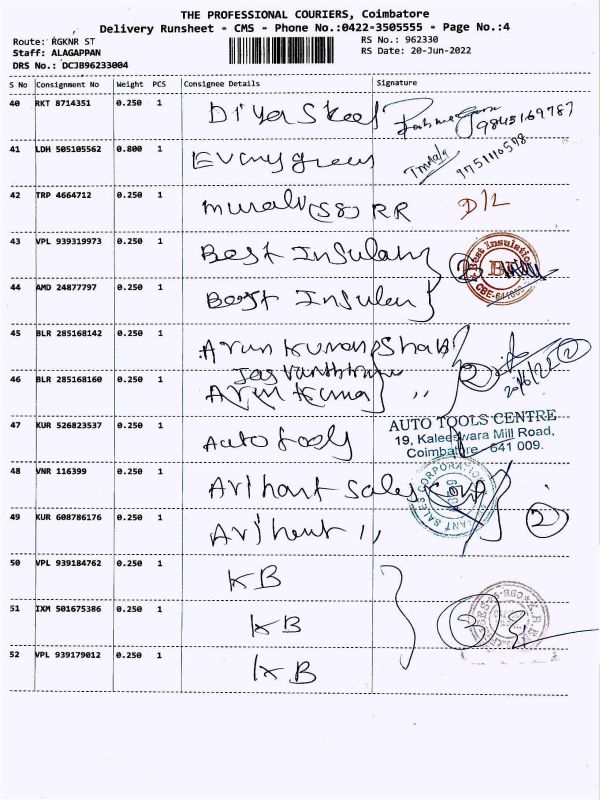 THE PROFESSIONAL COURIERS, Coimbatore
Delivery Runsheet - CMS - Phone No.:0422-3505555 - Page No.:4
Route: RGKNR ST
RS No.: 962330
Staff: ALAGAPPAN
RS Date: 20-Jun-2022
DRS No.: DCJB96233004
S No Consignment No Weight PCS Consignee Details Signature
40 RKT 8714351 0.250 1 9843169787
41 LDH 505105562 0.800 1 9751110578
42 TRP 4664712 0.250 1 Murali (S8) RR D/L
43 VPL 939319973 0.250 1 Best Insulan 2
Best Insulation
44 AMD 24877797 0.250 1 Best Insulan
45 BLR 285168142 0.250 1 Arun Kumar Shah 2
46 BLR 285168160 0.250 1 Arun Kuma ,,
47 KUR 526823537 0.250 1 Auto Tools
AUTO TOOLS CENTRE
19, Kaleeswara Mill Road,
Coimbatore - 641 009.
48 VNR 116399 0.250 1 Arihant Sales Corp
49 KUR 608786176 0.250 1 Arihant ,, 2
50 VPL 939184762 0.250 1 KB
51 IXM 501675386 0.250 1 KB 3
52 VPL 939179012 0.250 1 KB